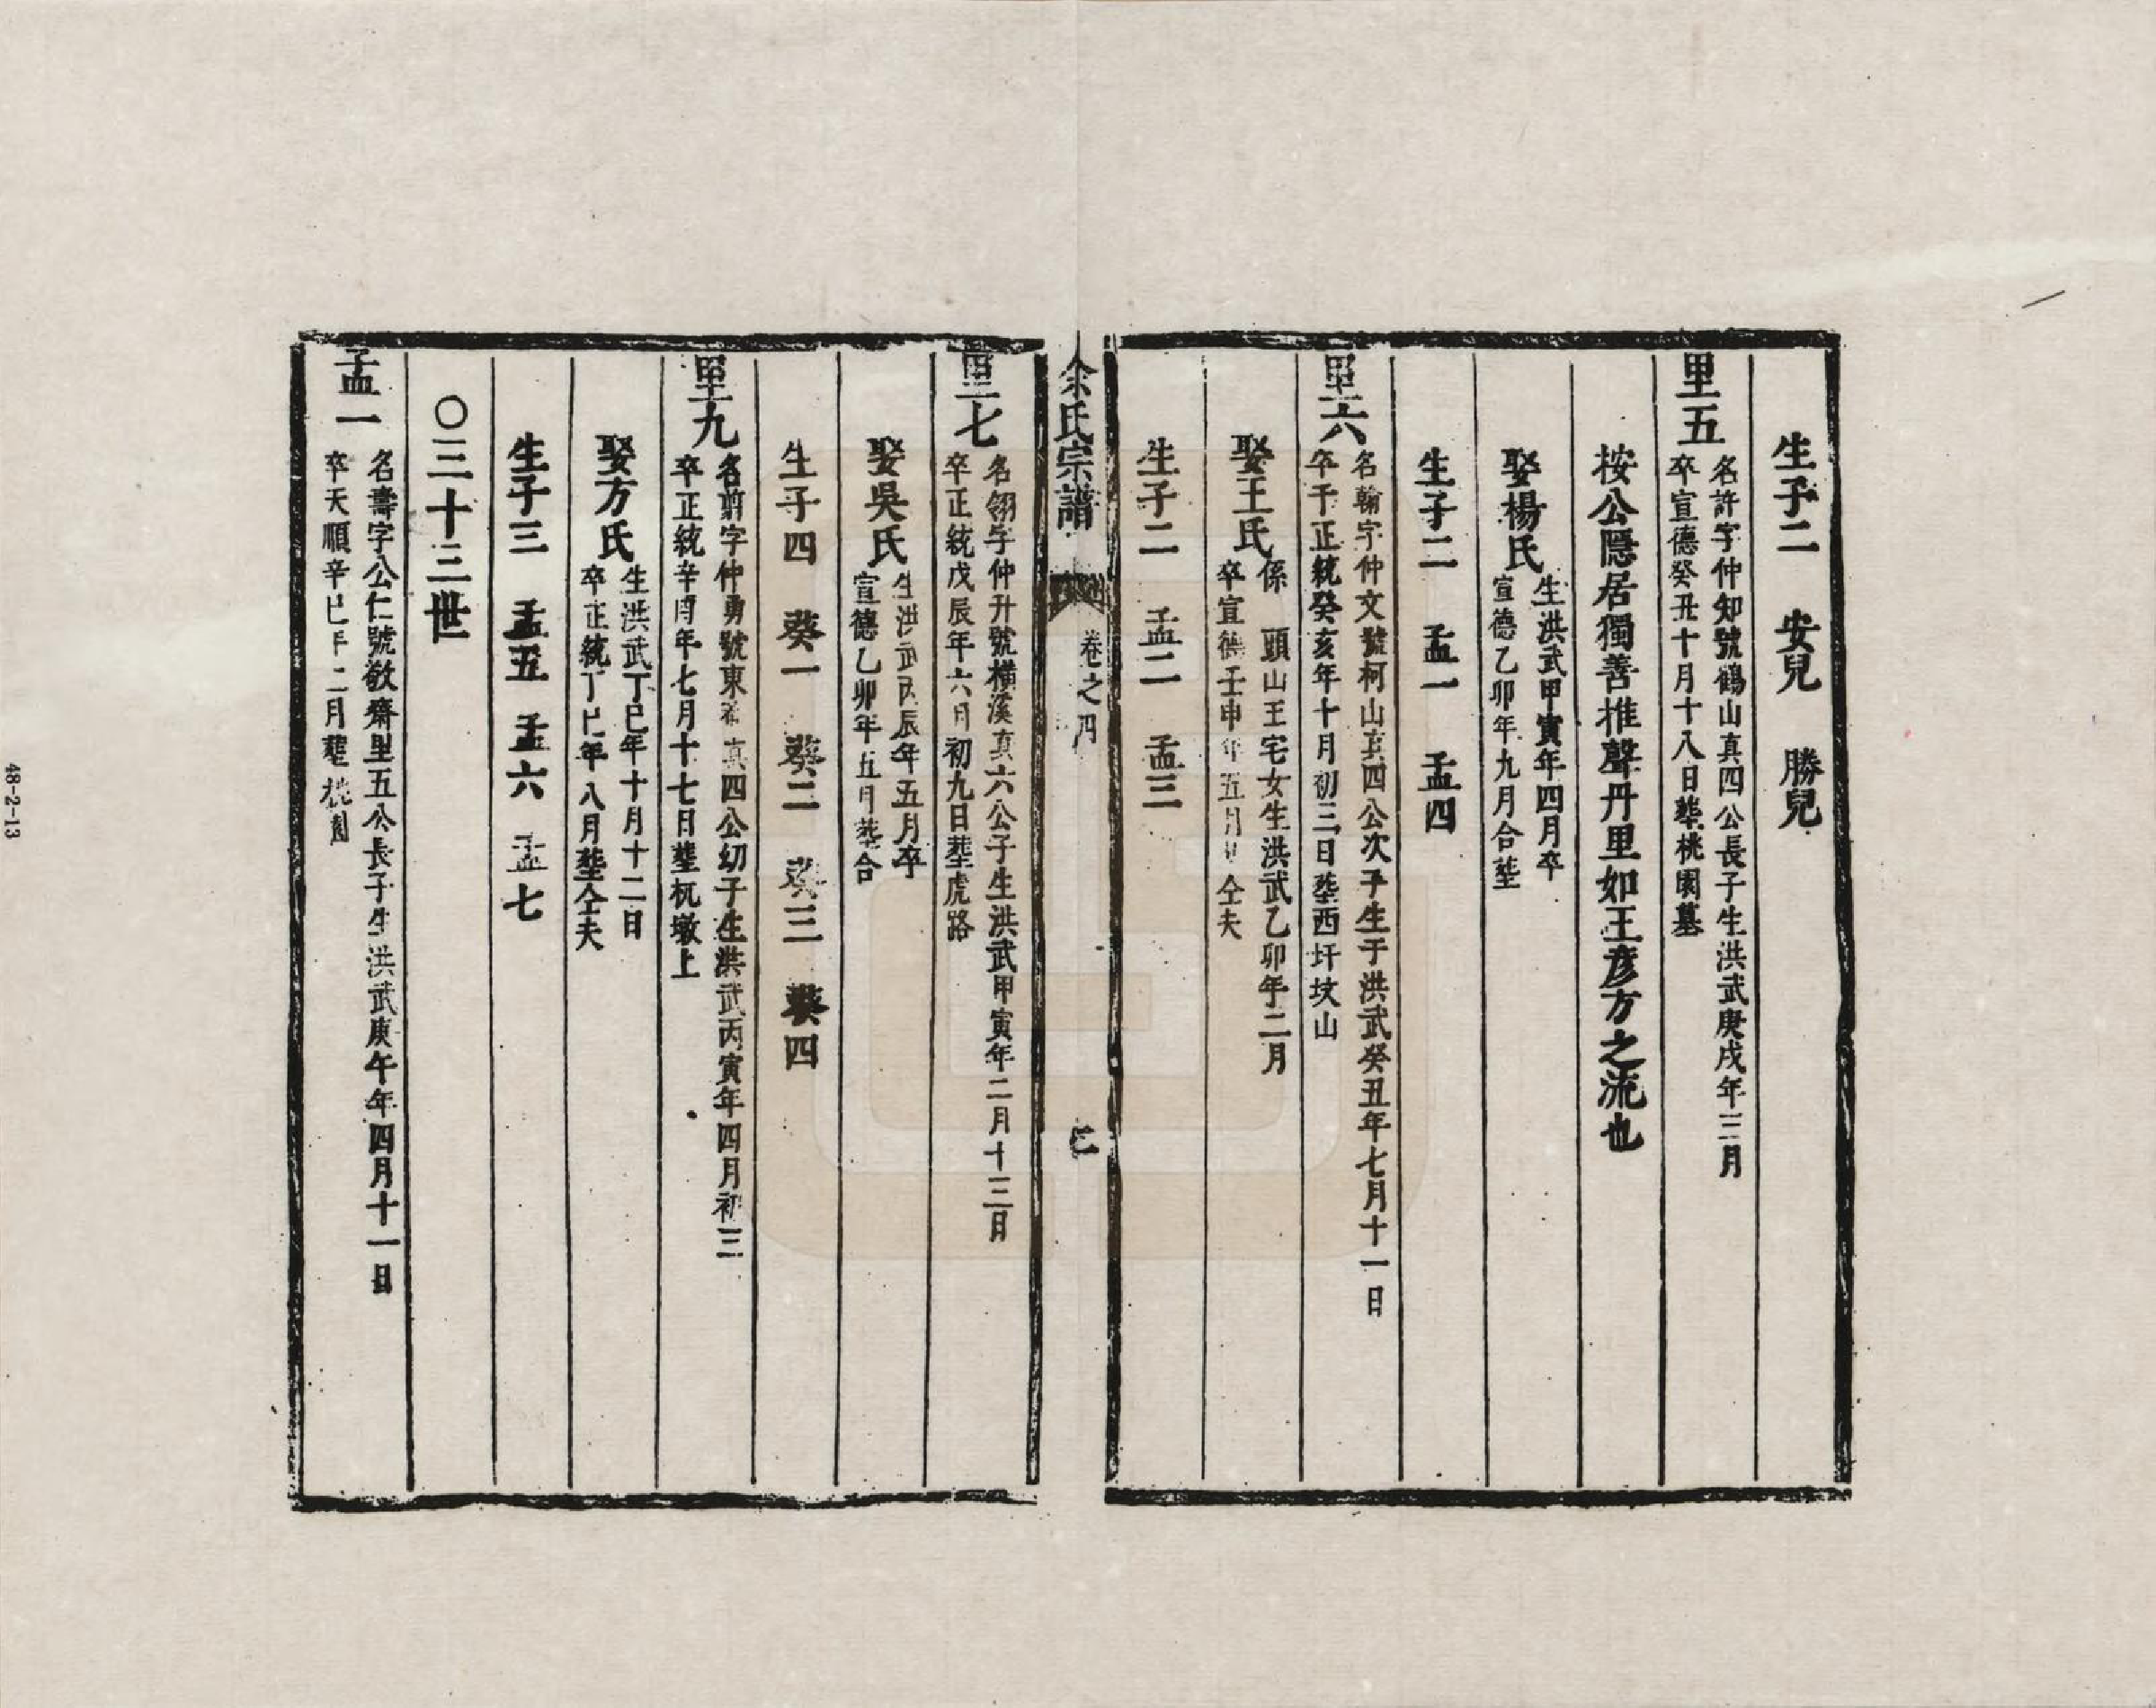 生子二 安兒 勝兒
里五
名許字仲知號鶴山真四公長子生洪武庚戌年三月
卒宣德癸丑十月十八日塟桃園墓
按公隱居獨善推聲丹里如王彦方之流也
娶楊氏
生洪武甲寅年四月卒
宣德乙卯年九月合塟
生子二 孟一 孟四
里六
名翰字仲文號柯山真四公次子生于洪武癸丑年七月十一日
卒于正統癸亥年十月初三日塟西圩坟山
娶王氏
係 頭山王宅女生洪武乙卯年二月
卒宣德壬申年五月 仝夫
生子二 孟二 孟三
余氏宗譜
卷之四
里七
名翎字仲升號橫溪真六公子生洪武甲寅年二月十三日
卒正統戊辰年六月初九日塟虎路
娶吳氏
生洪武丙辰年五月卒
宣德乙卯年五月塟合
生子四 葵一 葵二 葵三 葵四
里九
名翦字仲勇號東 真四公幼子生洪武丙寅年四月初三
卒正統辛酉年七月十七日塟杭墩上
娶方氏
生洪武丁巳年十月十二日
卒正統丁巳年八月塟仝夫
生子三 孟五 孟六 孟七
〇三十三世
孟一
名壽字公仁號敬齋里五公長子生洪武庚午年四月十一日
卒天順辛巳年二月塟桃園
48-2-13